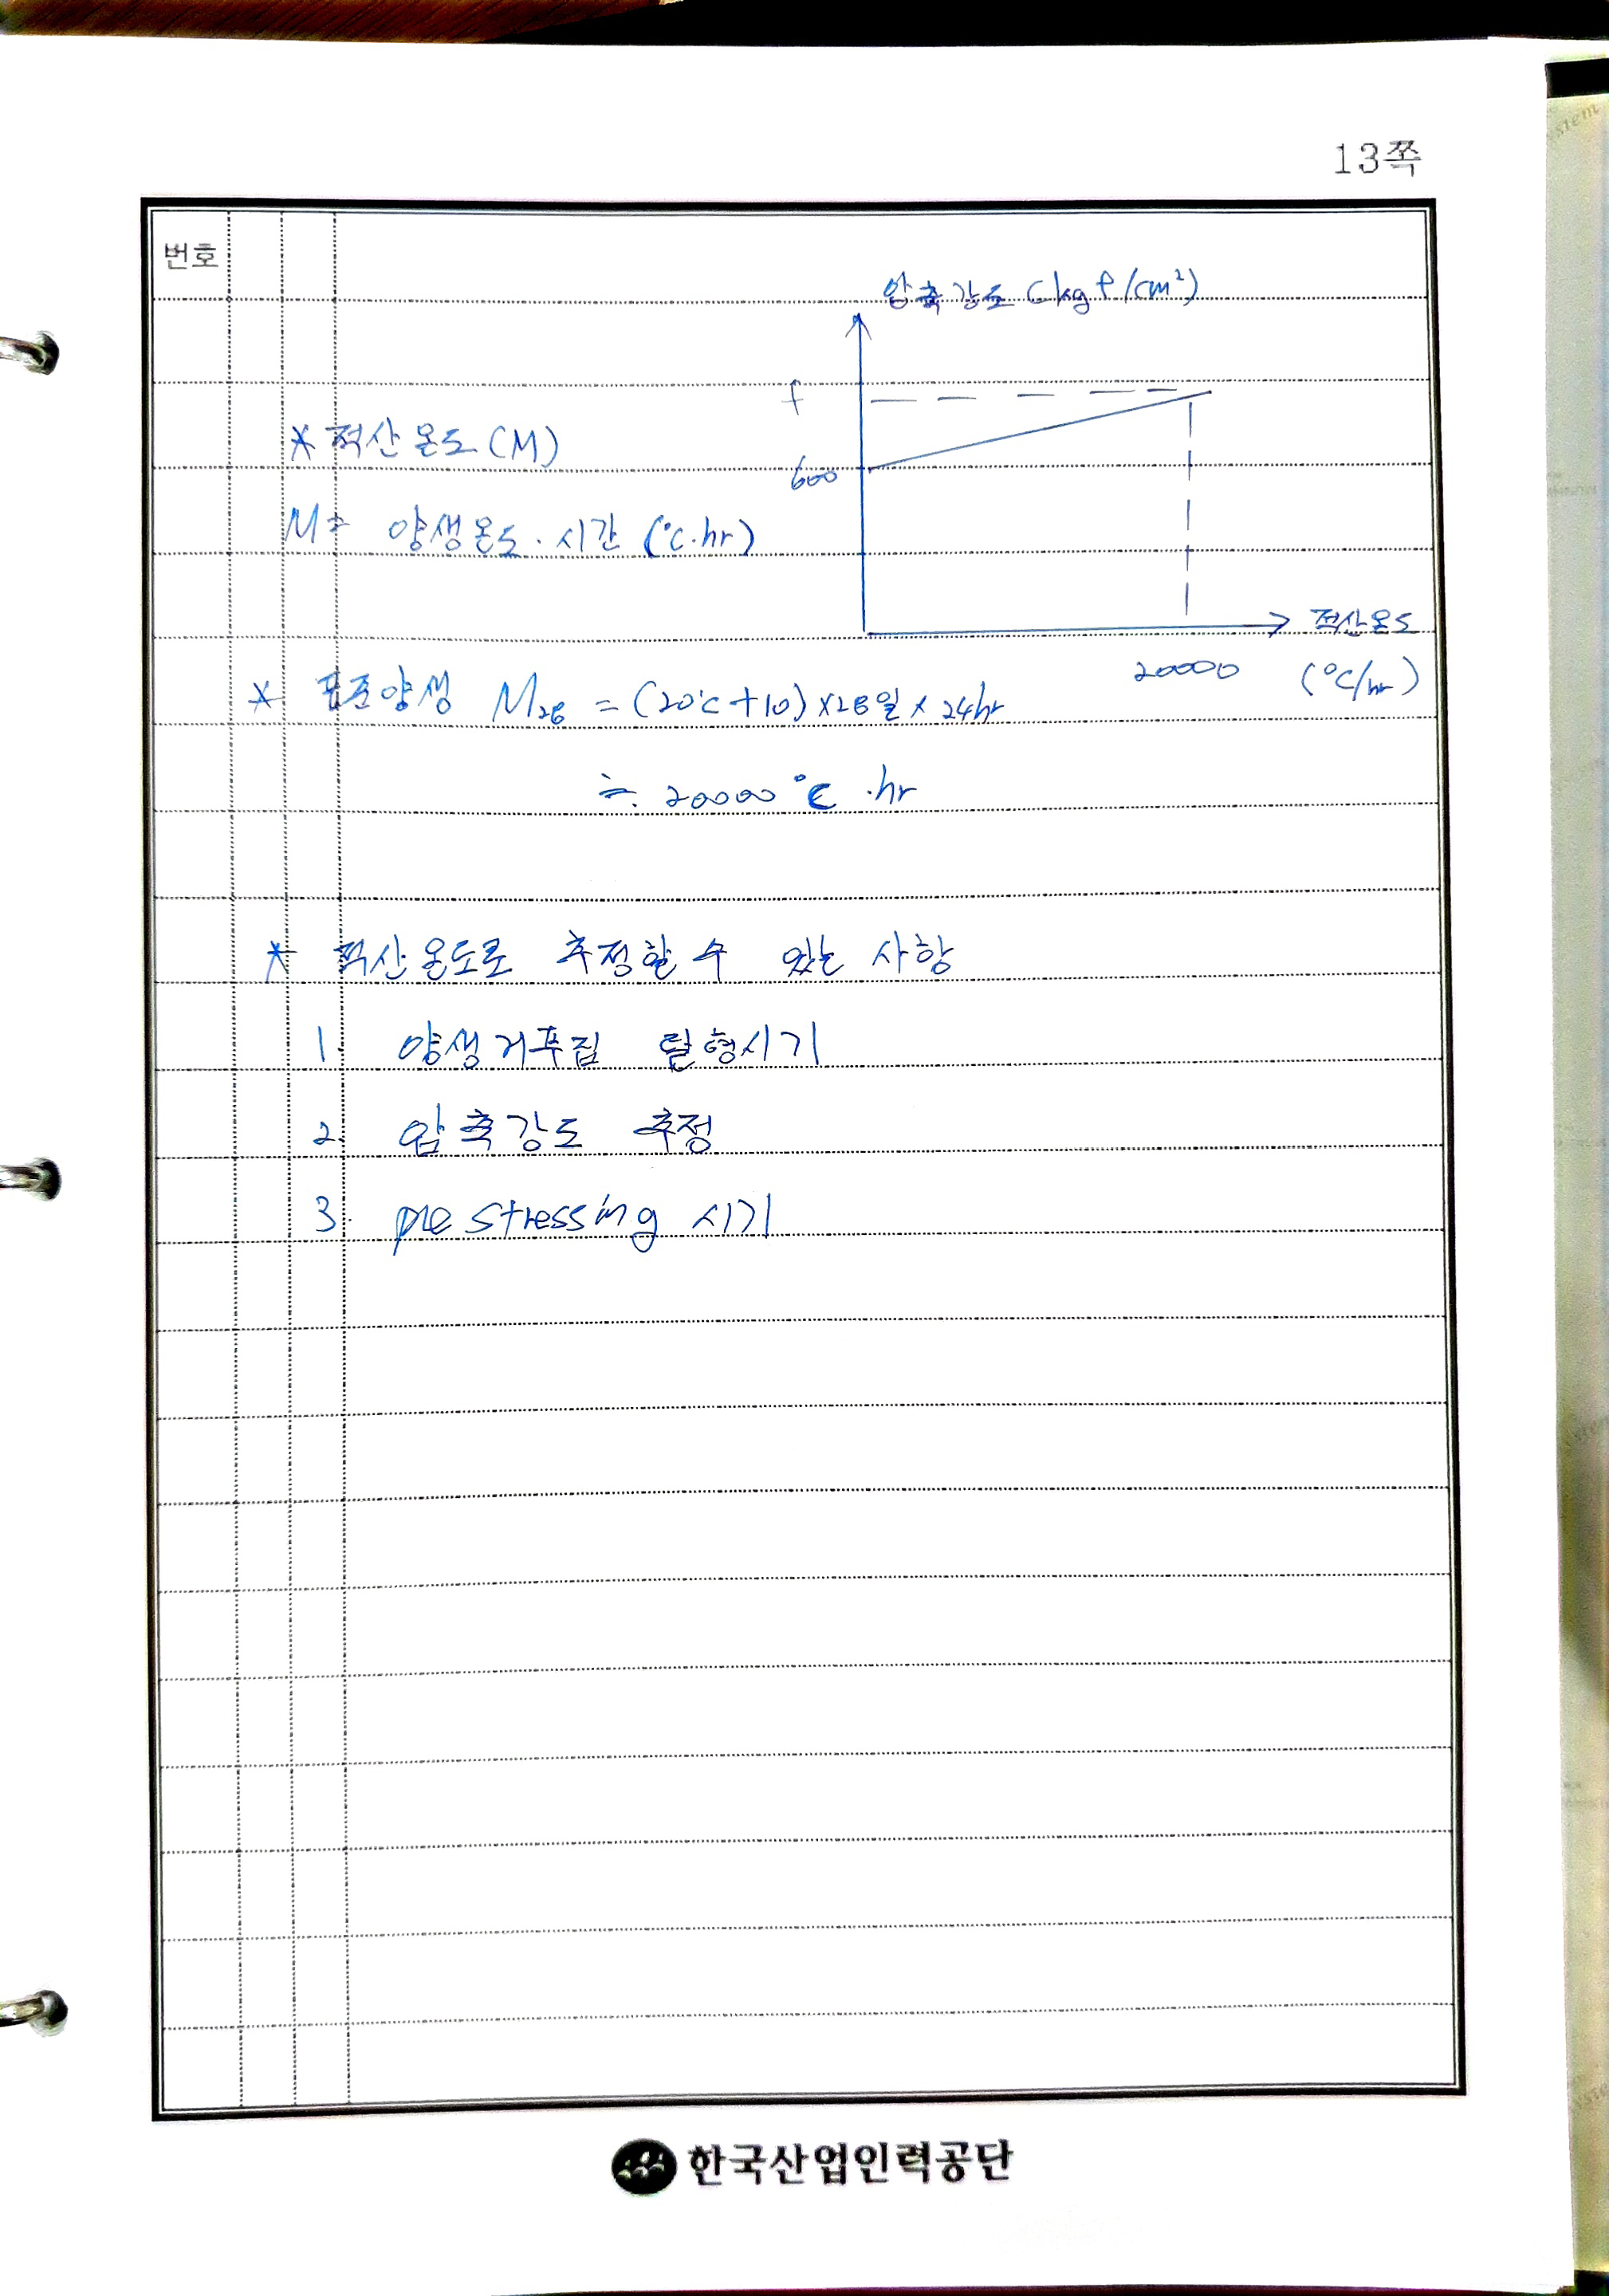 13쪽
번호
압축강도 (kgf/cm²)
f
* 적산온도 (M)
600
M = 양생온도 · 시간 (℃·hr)
적산온도
20000 (℃/hr)
* 표준양생 M28 = (20℃+10)×28일×24hr
≒ 20000℃·hr
* 적산온도로 추정할 수 있는 사항
1. 양생거푸집 탈형시기
2. 압축강도 추정
3. prestressing 시기
한국산업인력공단